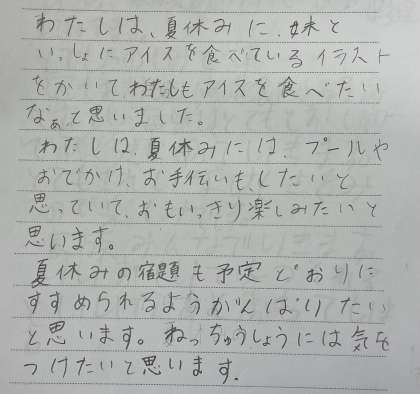 わたしは、夏休みに、妹と
いっしょにアイスを食べているイラスト
をかいてわたしもアイスを食べたい
なぁと思いました。
わたしは、夏休みには、プールや
おでかけ、お手伝いも、したいと
思っていて、おもいっきり楽しみたいと
思います。
夏休みの宿題も予定どおりに
すすめられるようがんばりたい
と思います。ねっちゅうしょうには気を
つけたいと思います.